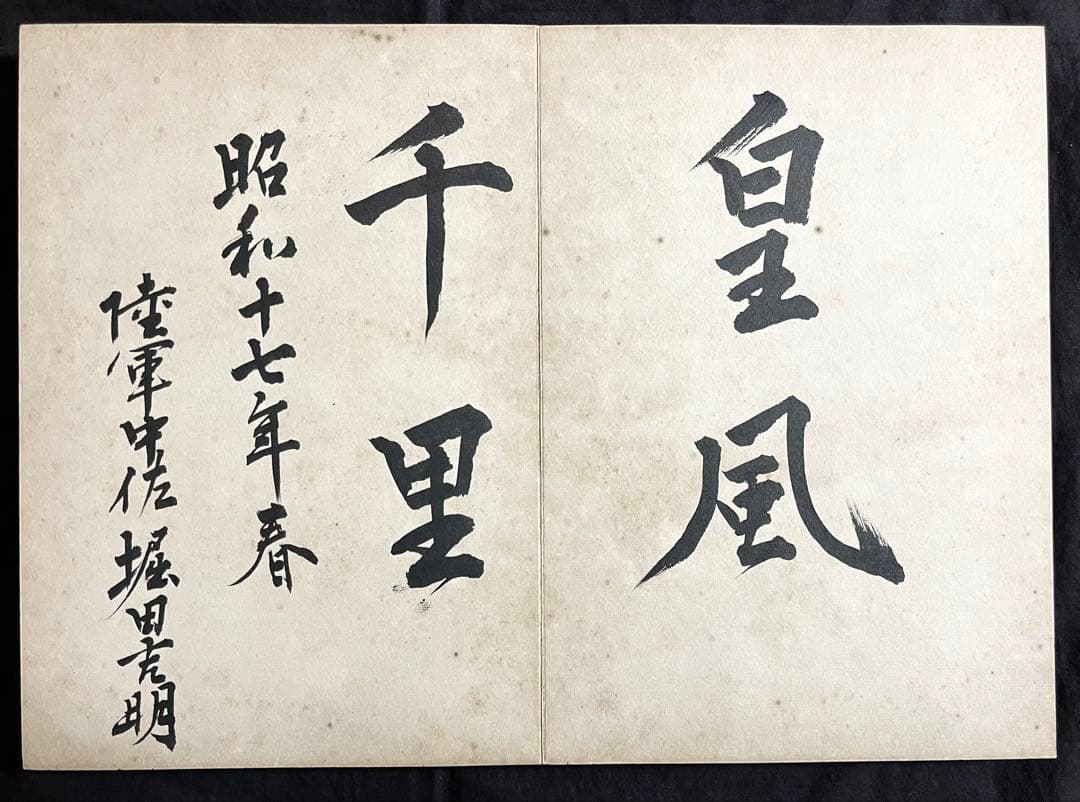 皇風
千里
昭和十七年春
陸軍中佐堀田吉明